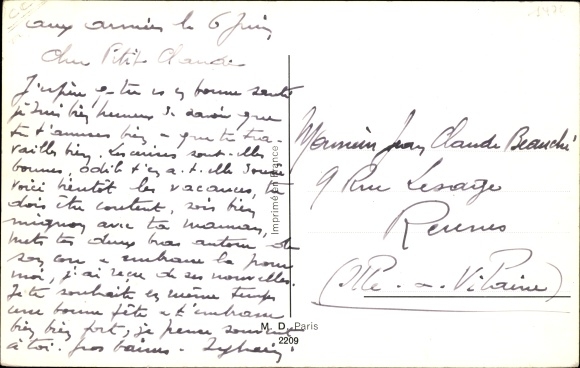 aux armées le 6 Juin
Cher Petit Claude
J'espère que tu es en bonne santé
je suis bien heureux de savoir que
tu t'amuses bien - que tu tra-
vailles bien. Les cerises sont-elles
bonnes, Odile t'en a-t-elle donné
voici bientôt les vacances, tu
dois être content, sois bien
mignon avec ta maman,
mets tes deux bras autour de
son cou & embrasse la pour
moi, j'ai reçu de ses nouvelles.
Je te souhaite en même temps
une bonne fête & t'embrasse
bien bien fort, je pense souvent
à toi. gros baisers -
Imprimé en France
M. D. Paris
2209
Monsieur Jean Claude
9 Rue Lesage
Rennes
(Ille-a-Vilaine)